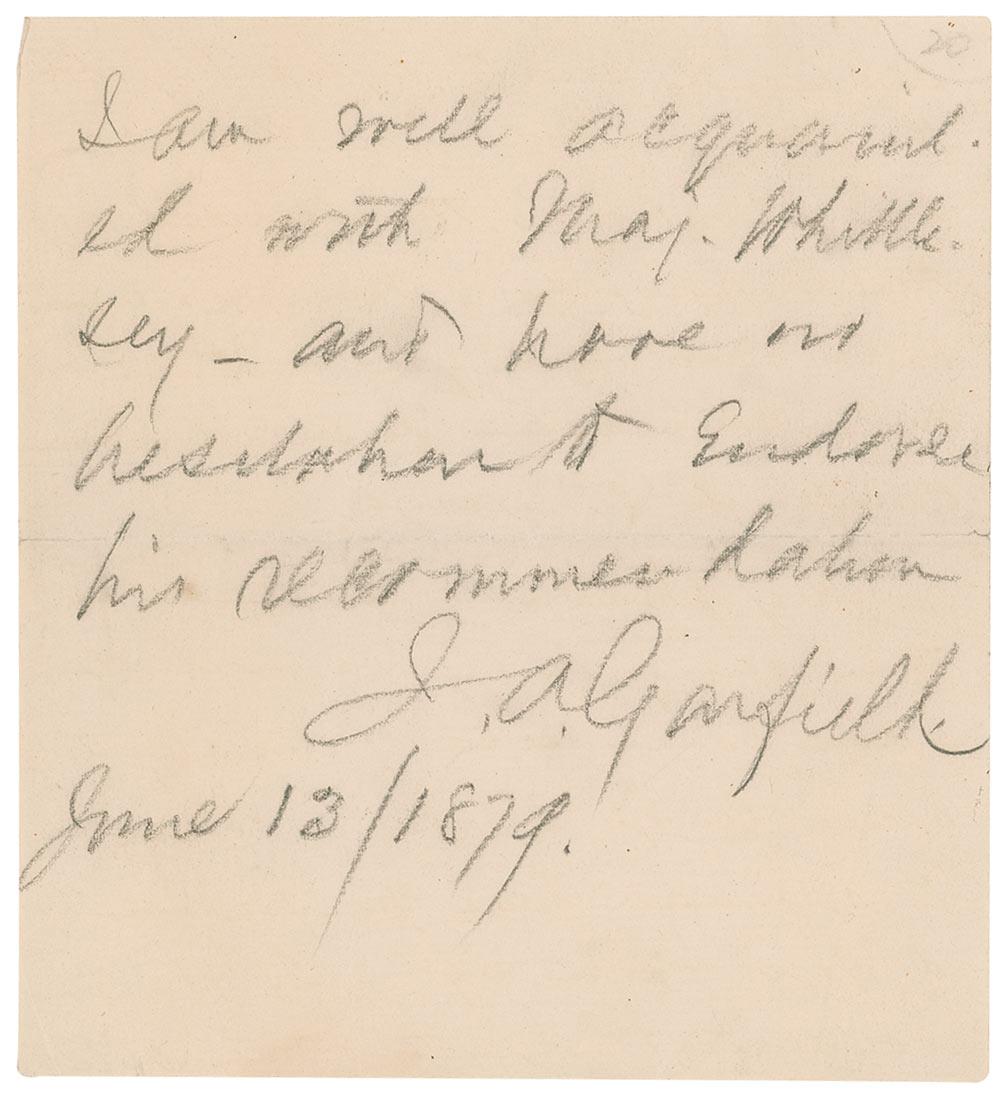 20
I am well acquaint-
ed with Maj. Whittle-
sey – and have no
hesitation to Endorse
his recommendation
J. A. Garfield.
June 13/1879.